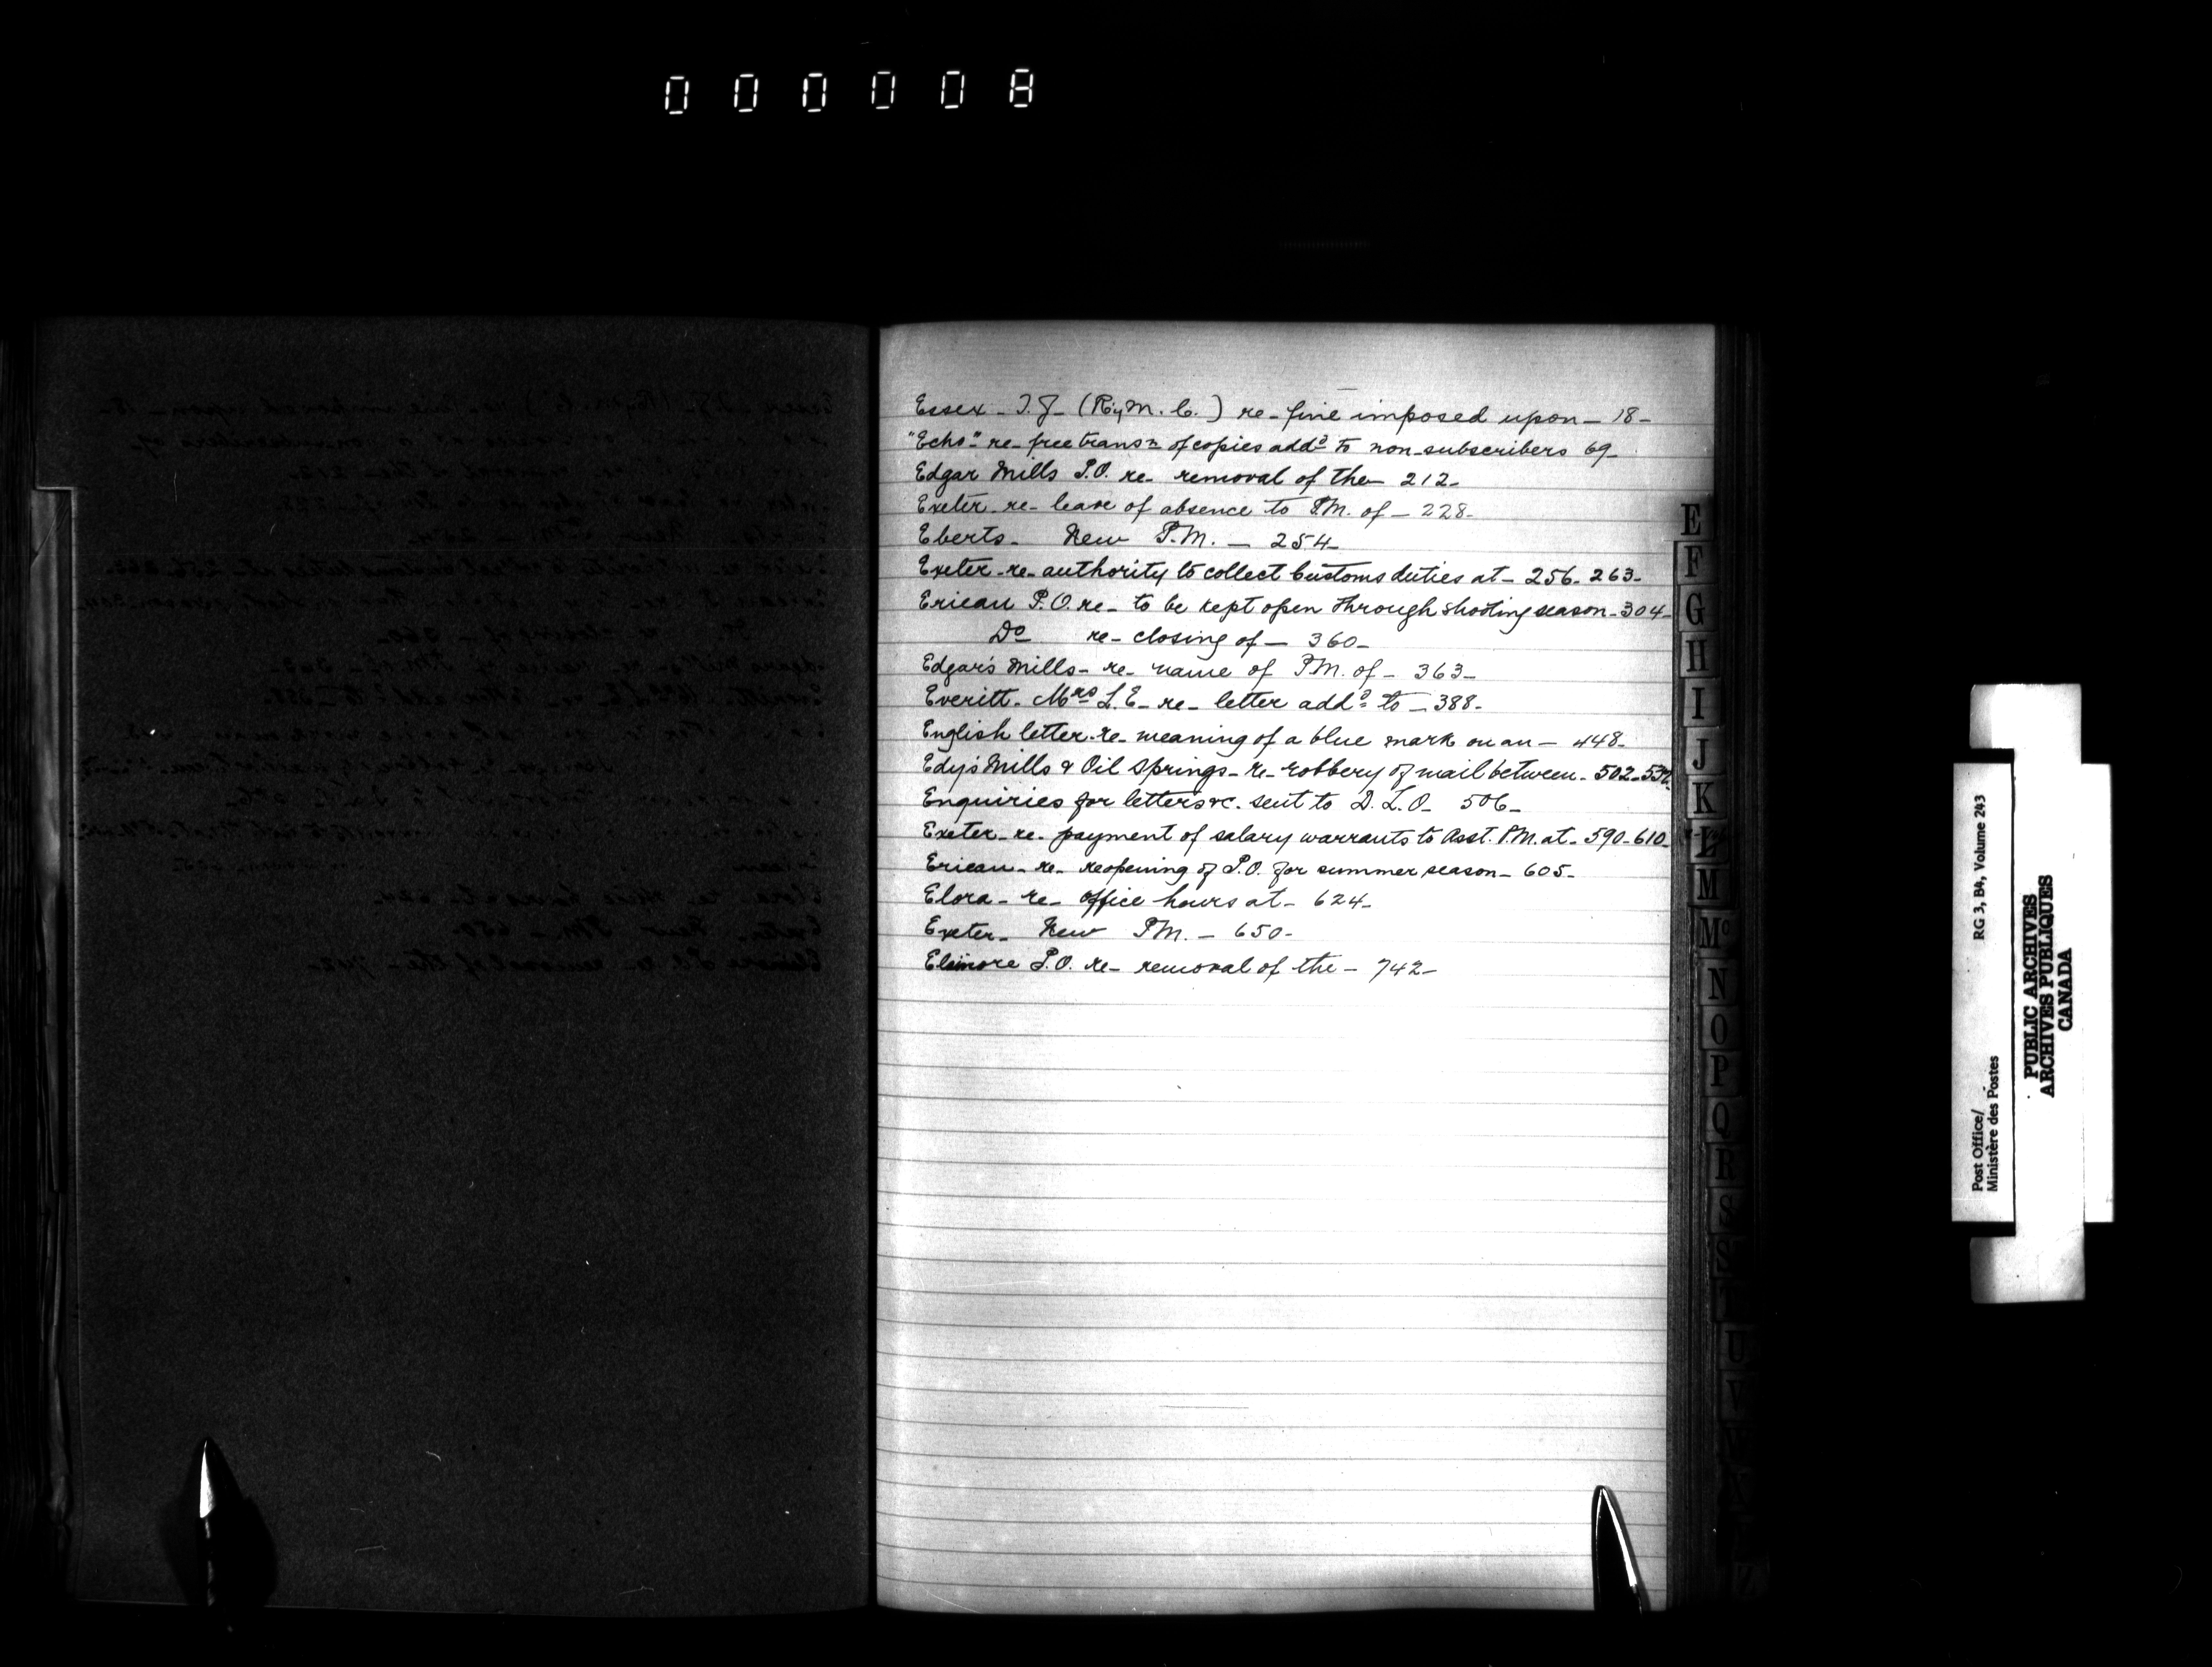 000008
Essex - J. J. (Ry M. C.) re - fine imposed upon - 18 -
"Echo" re - free transn of copies addd to non-subscribers 69 -
Edgar Mills P.O. re - removal of the - 212 -
Exeter - re - leave of absence to P.M. of - 228 -
Eberts - New P.M. - 254 -
Exeter - re - authority to collect Customs duties at - 256 - 263 -
Erieau P.O. re - to be kept open through shooting season - 304 -
Do re - closing of - 360 -
Edgar's Mills - re - name of P.M. of - 363 -
Everitt - Mrs L. E - re - letter addd to - 388 -
English letter - re - meaning of a blue mark on an - 448 -
Edy's Mills & Oil Springs - re - robbery of mail between - 502 -
Enquiries for letters &c. sent to D. L. O - 506 -
Exeter - re - payment of salary warrants to Asst. P.M. at - 590 - 610
Erieau - re - reopening of P.O. for summer season - 605 -
Elora - re - office hours at - 624 -
Exeter - New P.M. - 650 -
Elsinore P.O. re - removal of the - 742 -
E
F
G
H
I
J
K
L
M
Mc
N
O
P
Q
R
S
U
V
Post Office/
Ministère des Postes
RG 3, B4, Volume 243
PUBLIC ARCHIVES
ARCHIVES PUBLIQUES
CANADA